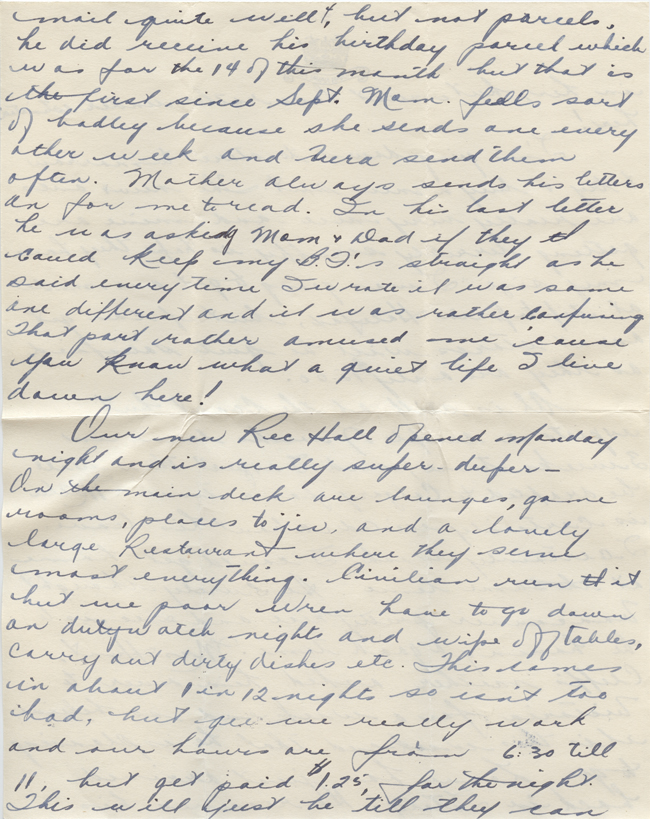 mail quite well, but not parcels,
he did receive his birthday parcel which
was for the 14 of this month but that is
the first since Sept. Mom. fells sort
of badley because she sends one every
other week and Vera send them
often. Mother always sends his letters
on for me to read. In his last letter
he was asking Mom & Dad if they
could keep my B.F.'s straight as he
said everytime I wrote it was some
one different and it was rather confusing
That part rather amused me 'cause
you know what a quiet life I live
down here!
Our new Rec Hall opened Monday
night and is really super-duper-
On the main deck are lounges, game
rooms, places to jive, and a lovely
large Restaurant where they serve
most everything. Civilian run it
but we poor wren have to go down
on dutywatch nights and wipe off tables,
carry out dirty dishes etc. This comes
in about 1 in 12 nights so isn't too
bad, but gee we really work
and our hours are from 6:30 till
11, but get paid $1.25, for the night.
This will just be till they can